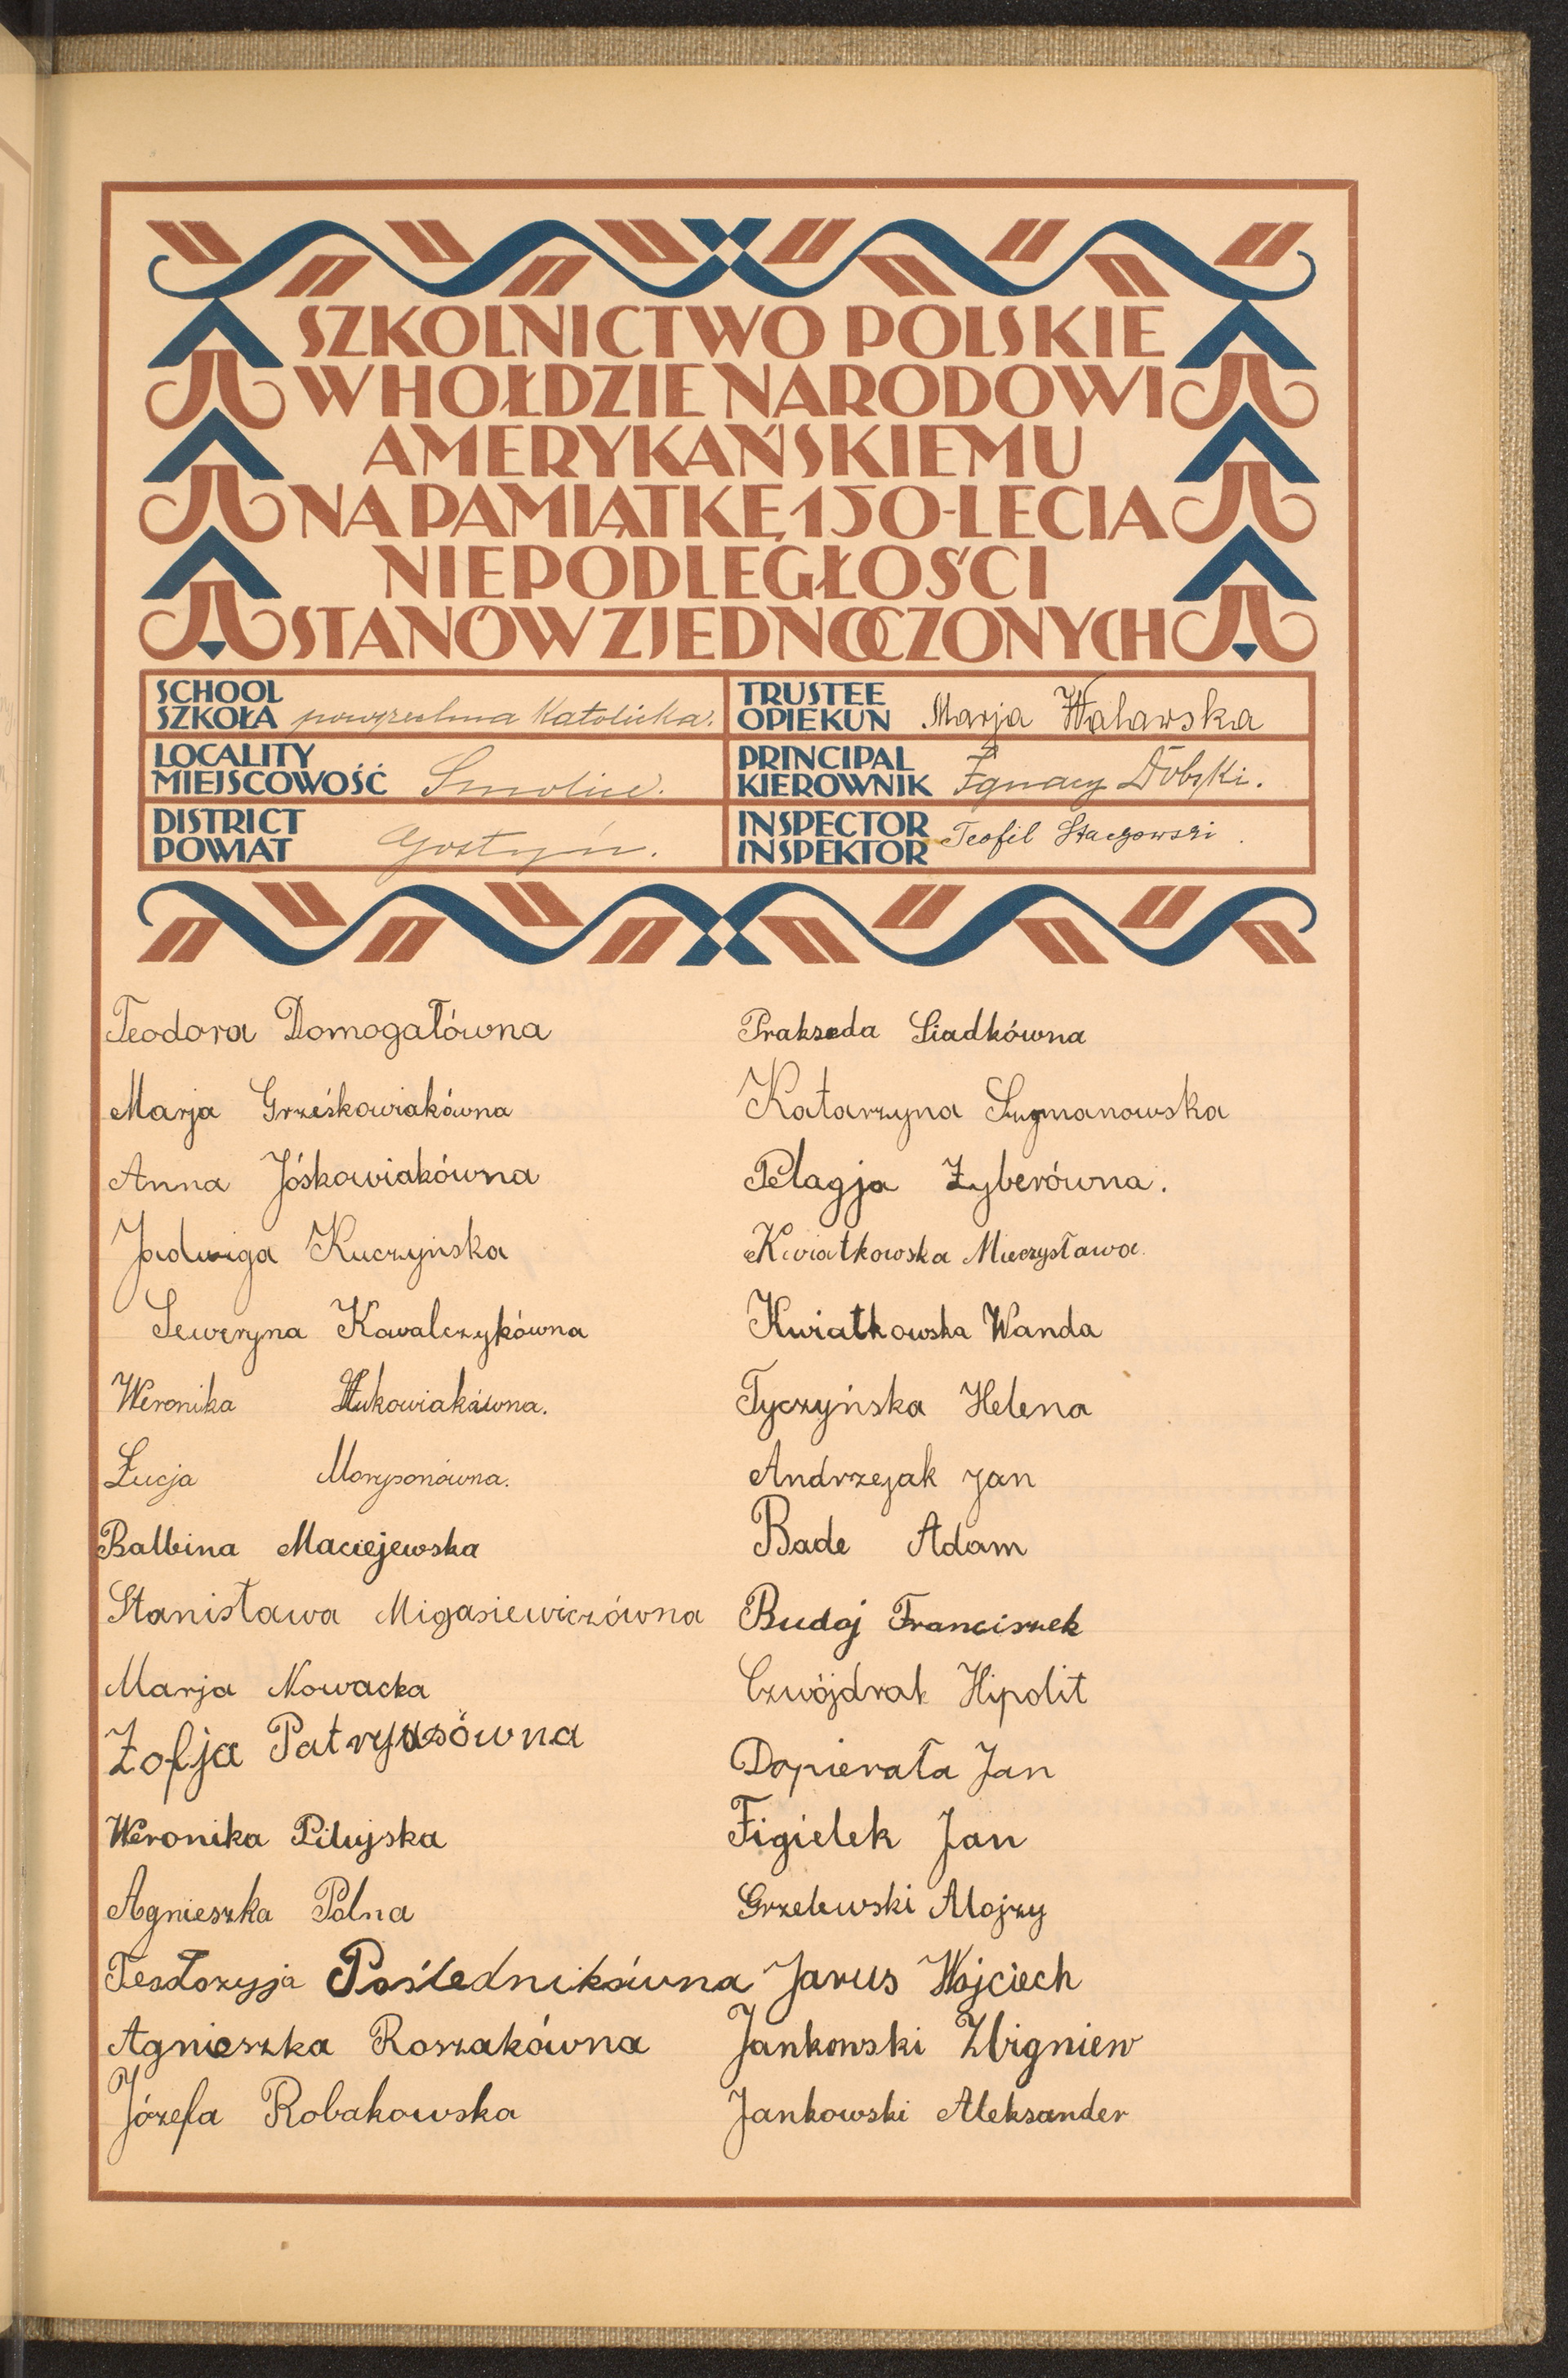 SZKOLNICTWO POLSKIE
W HOŁDZIE NARODOWI
AMERYKAŃSKIEMU
NA PAMIĄTKĘ 150-LECIA
NIEPODLEGŁOŚCI
STANÓW ZJEDNOCZONYCH
SCHOOL
SZKOŁA powszechna Katolicka.
LOCALITY
MIEJSCOWOŚĆ Smolice.
DISTRICT
POWIAT Gostyń.
TRUSTEE
OPIEKUN Marja Walawska
PRINCIPAL
KIEROWNIK Ignacy Dolski.
INSPECTOR
INSPEKTOR Teofil
Teodora Domogałówna
Marja Grześkowiakówna
Anna Jóśkowiakówna
Jadwiga Kuczyńska
Seweryna Kowalczykówna
Weronika
Łucja Morysonówna.
Balbina Maciejewska
Stanisława Migasiewiczówna
Marja Nowacka
Zofja Patryasówna
Weronika Pilujska
Agnieszka Polna
Poślednikówna
Agnieszka Roszakówna
Józefa Robakowska
Prakseda Siadkówna
Katarzyna Szymanowska
Pelagja Żyberówna.
Kwiatkowska Mieczysława.
Kwiatkowska Wanda
Tyczyńska Helena
Andrzejak Jan
Bade Adam
Budaj Franciszek
Czwójdrak Hipolit
Dopierała Jan
Figielek Jan
Grzelewski Alojzy
Jarus Wojciech
Jankowski Zbigniew
Jankowski Aleksander